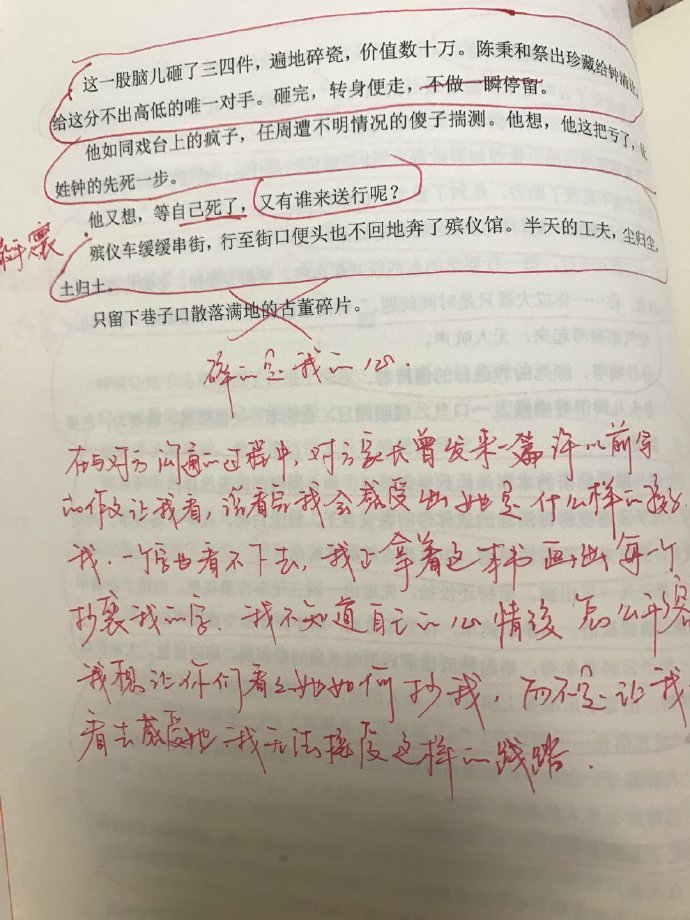 这一股脑儿砸了三四件，遍地碎瓷，价值数十万。陈秉和祭出珍藏给钟
给这分不出高低的唯一对手。砸完，转身便走，不做一瞬停留。
他如同戏台上的疯子，任周遭不明情况的傻子揣测。他想，他这把亏了，让
姓钟的先死一步。
他又想，等自己死了，又有谁来送行呢？
殡仪车缓缓串街，行至街口便头也不回地奔了殡仪馆。半天的工夫，尘归尘，
土归土。
只留下巷子口散落满地的古董碎片。
碎的是我的心.
在与对方沟通的过程中，对方家长曾发来一篇许以前写
的作文让我看，说看后我会感受出她是什么样的孩子.
我，一个字也看不下去，我正拿着这本书画出每一个
抄袭我的字. 我不知道自己的心情该怎么平复
我想让你们看看她如何抄我，而不是让我
看去感受她 我无法接受这样的